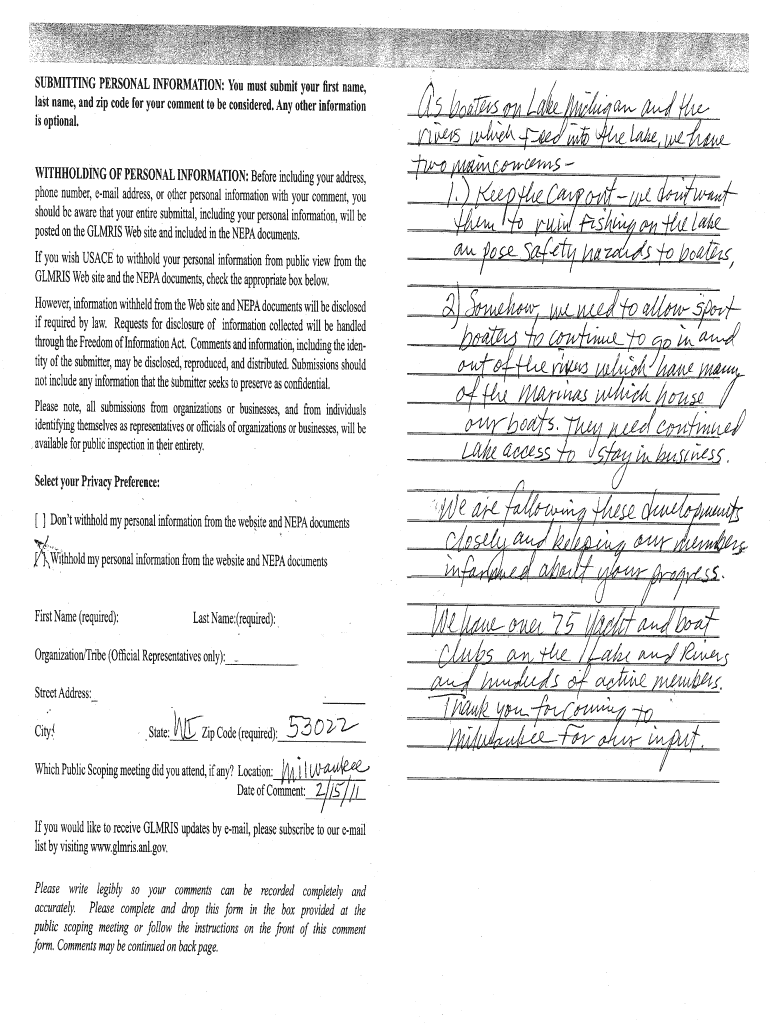 SUBMITTING PERSONAL INFORMATION: You must submit your first name,
last name, and zip code for your comment to be considered. Any other information
is optional.
WITHHOLDING OF PERSONAL INFORMATION: Before including your address,
phone number, e-mail address, or other personal information with your comment, you
should be aware that your entire submittal, including your personal information, will be
posted on the GLMRIS Web site and included in the NEPA documents.
If you wish USACE to withhold your personal information from public view from the
GLMRIS Web site and the NEPA documents, check the appropriate box below.
However, information withheld from the Web site and NEPA documents will be disclosed
if required by law. Requests for disclosure of information collected will be handled
through the Freedom of Information Act. Comments and information, including the iden-
tity of the submitter, may be disclosed, reproduced, and distributed. Submissions should
not include any information that the submitter seeks to preserve as confidential.
Please note, all submissions from organizations or businesses, and from individuals
identifying themselves as representatives or officials of organizations or businesses, will be
available for public inspection in their entirety.
Select your Privacy Preference:
[ ] Don't withhold my personal information from the website and NEPA documents
[X] Withhold my personal information from the website and NEPA documents
First Name (required): Last Name:(required):
Organization/Tribe (Official Representatives only):
Street Address:
City: State: WI Zip Code (required): 53022
Which Public Scoping meeting did you attend, if any? Location: Milwaukee
Date of Comment: 2/15/11
If you would like to receive GLMRIS updates by e-mail, please subscribe to our e-mail
list by visiting www.glmris.anl.gov.
Please write legibly so your comments can be recorded completely and
accurately. Please complete and drop this form in the box provided at the
public scoping meeting or follow the instructions on the front of this comment
form. Comments may be continued on back page.
As boaters on Lake Michigan and the
rivers which feed into the Lake, we have
two main concerns-
1.) Keep the Carp out - we don't want
them to ruin fishing on the Lake
an pose safety hazards to boaters,
2) Somehow, we need to allow sport
boaters to continue to go in and
out of the rivers which have many
of the marinas which house
our boats. They need continued
Lake access to stay in business.
We are following these developments
closely and keeping our members
informed about your progress.
We have over 75 Yacht and boat
clubs on the Lake and Rivers
and hundreds of active members.
Thank you for coming to
Milwaukee for our input.